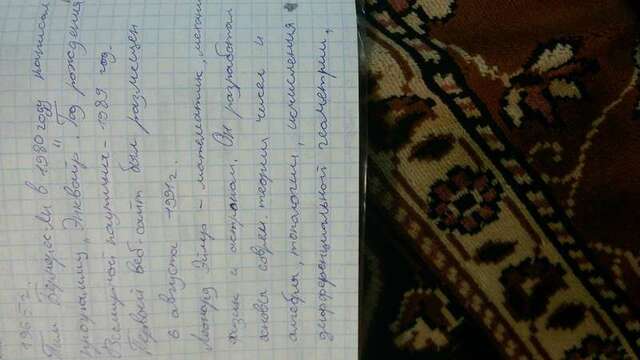 1965 г.
Тим Бернерс-Ли в 1980 году написал
программу „Энквайр". Год рождения
Всемирной паутины - 1989 год.
Первый веб-сайт был размещен
6 августа 1991 г.
Леонард Эйлер - математик, механ
физик и астроном. Он разработал
основы соврем. теории чисел и
алгебры, топологии, исчисления
дифференциальной геометрии.